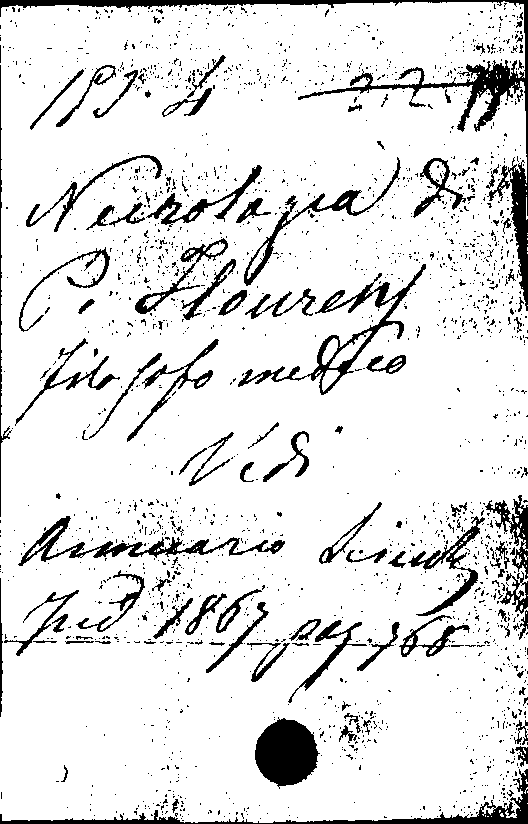 153.4 2.2.77
Necrologia di
P. Flourens
filosofo medico
Vedi
Annuario Scient
Ind 1867 pag. 768